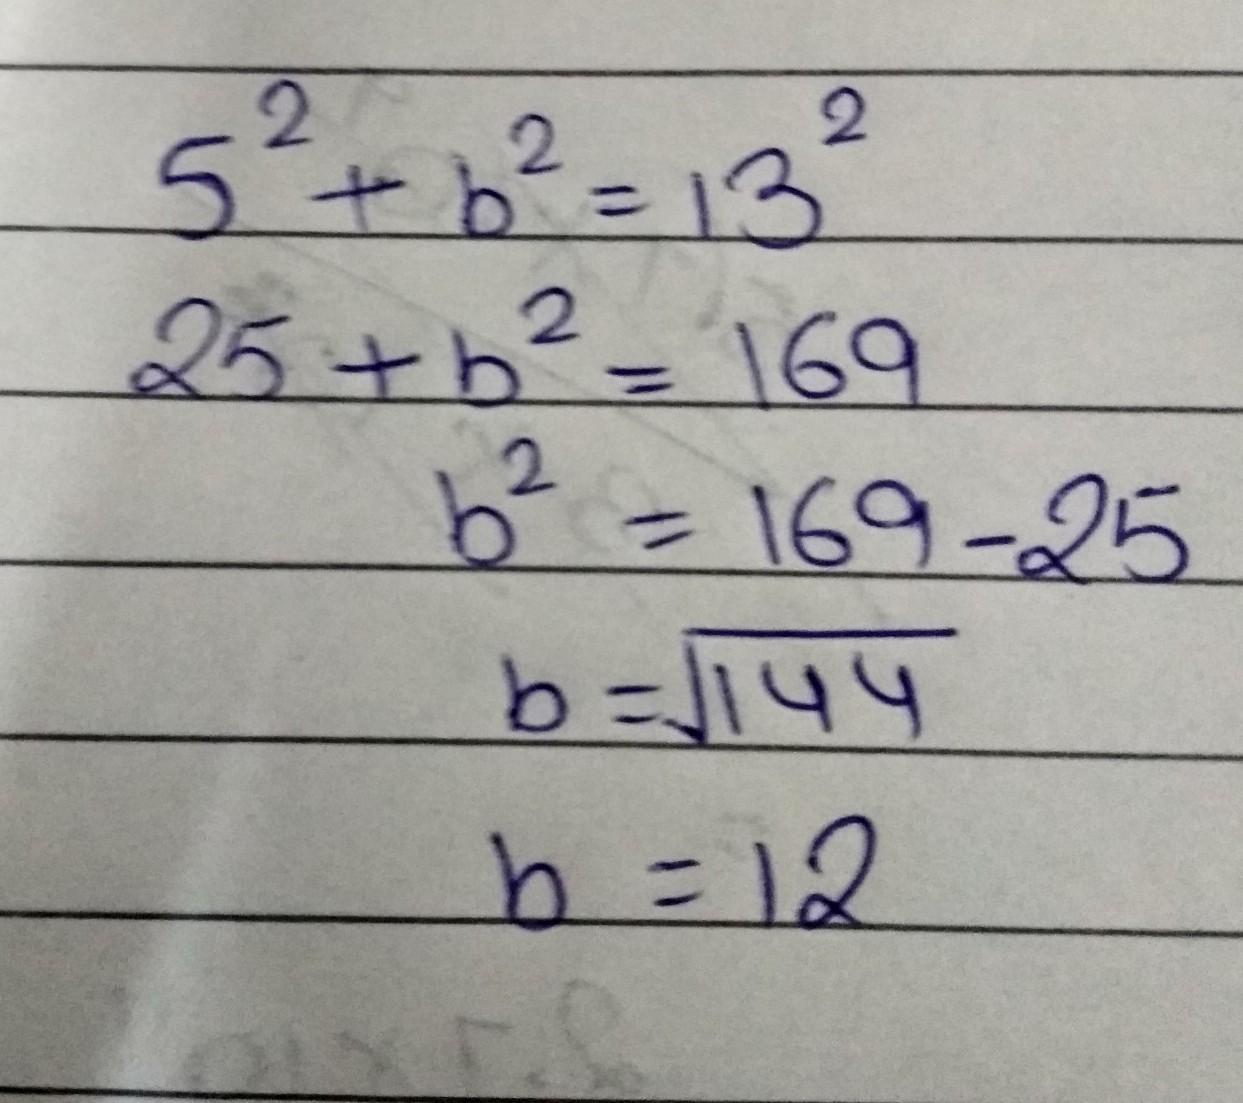 5² + b² = 13²
25 + b² = 169
b² = 169 - 25
b = √144
b = 12